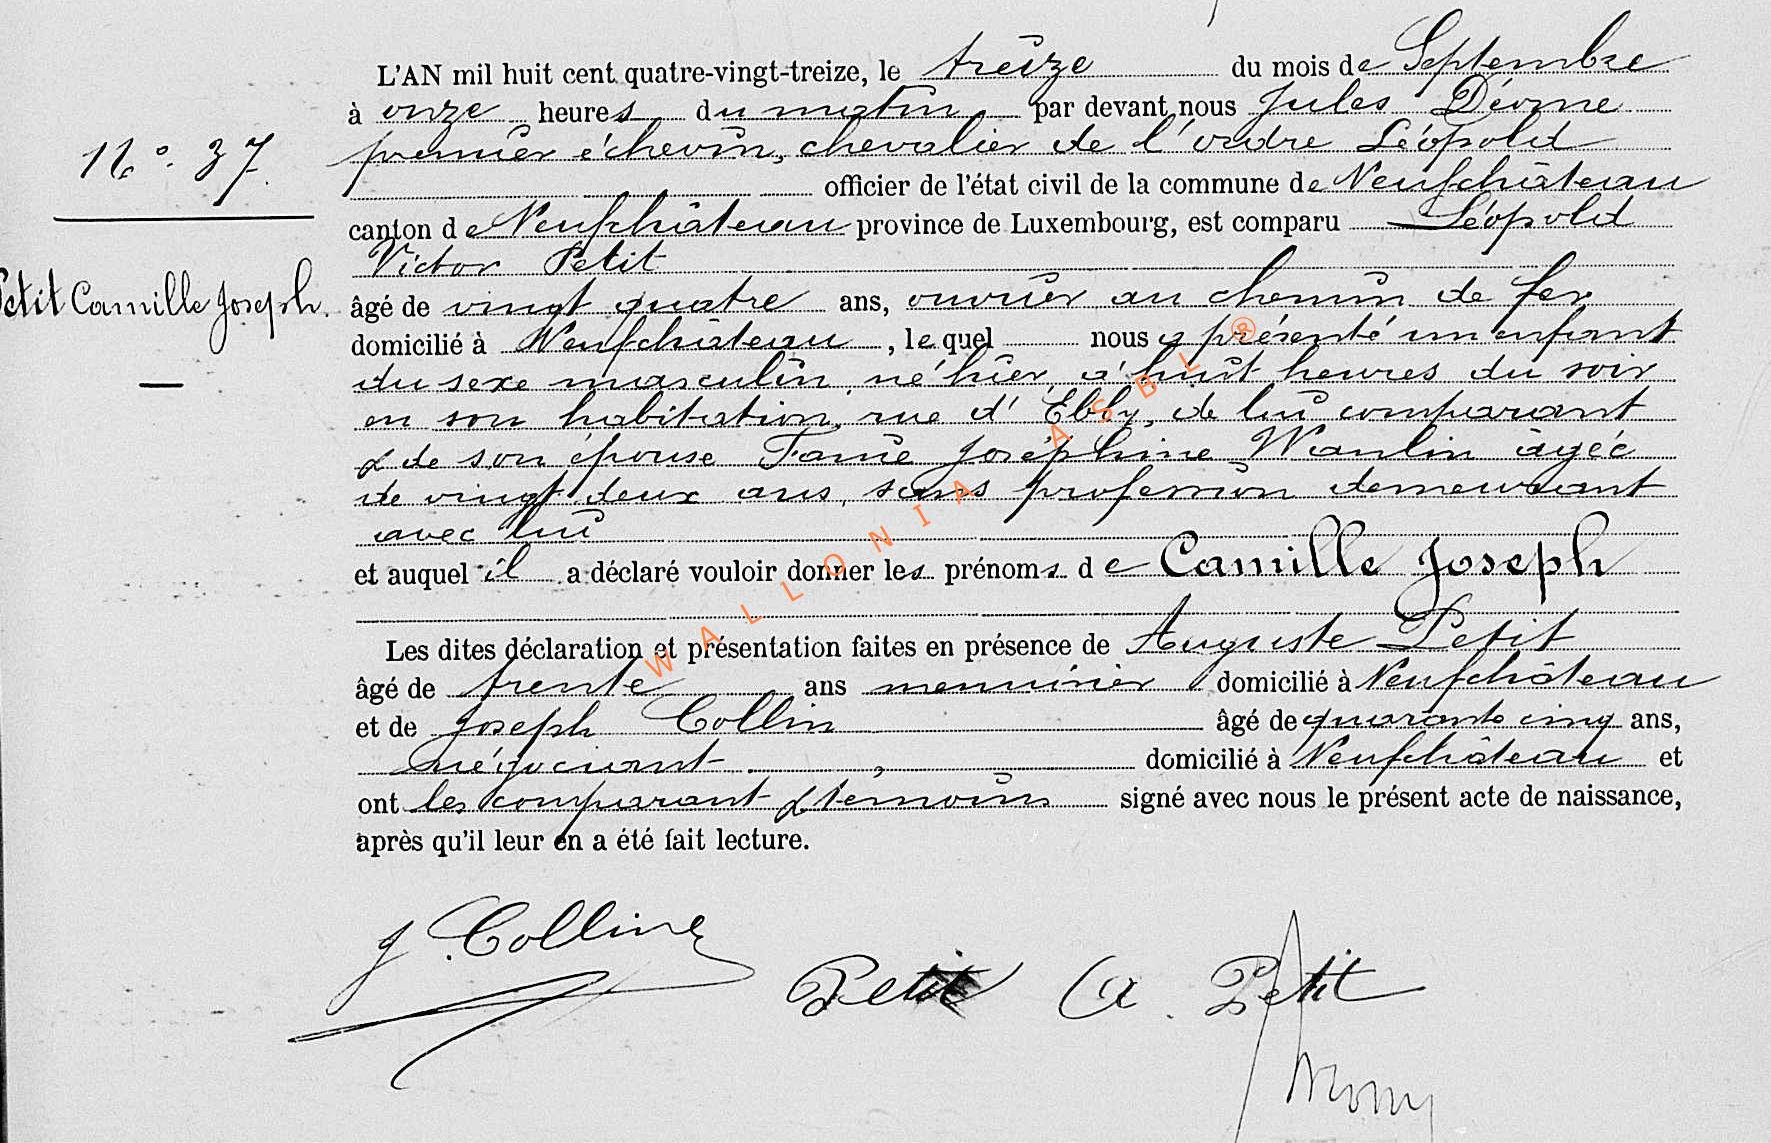 L'AN mil huit cent quatre-vingt-treize, le treize du mois de Septembre
à onze heures du matin par devant nous Jules
premier échevin, chevalier de l'ordre Léopold
N° 37
officier de l'état civil de la commune de Neufchâteau
canton de Neufchâteau province de Luxembourg, est comparu Léopold
Victor Petit
Petit Camille Joseph.
âgé de vingt quatre ans, ouvrier au chemin de fer
domicilié à Neufchâteau, lequel nous a présenté un enfant
du sexe masculin, né hier, à huit heures du soir
en son habitation, rue d'Ebly, de lui comparant
& de son épouse Joséphine Wanlin âgée
de vingt deux ans, sans profession demeurant
avec lui
et auquel il a déclaré vouloir donner les prénoms de Camille Joseph
Les dites déclaration et présentation faites en présence de Auguste Petit
âgé de trente ans menuisier domicilié à Neufchâteau
et de Joseph Collin âgé de quarante cinq ans,
négociant, domicilié à Neufchâteau et
ont les comparant & témoins signé avec nous le présent acte de naissance,
après qu'il leur en a été fait lecture.
WALLONIA ASBL ®
J. Collin
Petit A. Petit